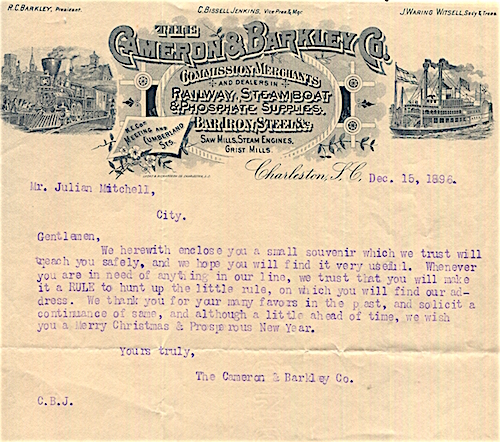 R.C. BARKLEY, President.
C. BISSELL JENKINS, Vice Pres & Mgr.
J. WARING WITSELL, Secy & Treas.
THE
CAMERON & BARKLEY CO.
COMMISSION MERCHANTS
AND DEALERS IN
RAILWAY, STEAMBOAT
& PHOSPHATE SUPPLIES.
BAR IRON, STEEL &c
SAW MILLS, STEAM ENGINES,
GRIST MILLS.
MEETING AND
CUMBERLAND
STS.
Charleston, S.C. Dec. 15, 1896.
Mr. Julian Mitchell,
City.
Gentlemen,
We herewith enclose you a small souvenir which we trust will
reach you safely, and we hope you will find it very useful. Whenever
you are in need of anything in our line, we trust that you will make
it a RULE to hunt up the little rule, on which you will find our ad-
dress. We thank you for your many favors in the past, and solicit a
continuance of same, and although a little ahead of time, we wish
you a Merry Christmas & Prosperous New Year.
Yours truly,
The Cameron & Barkley Co.
C.B.J.